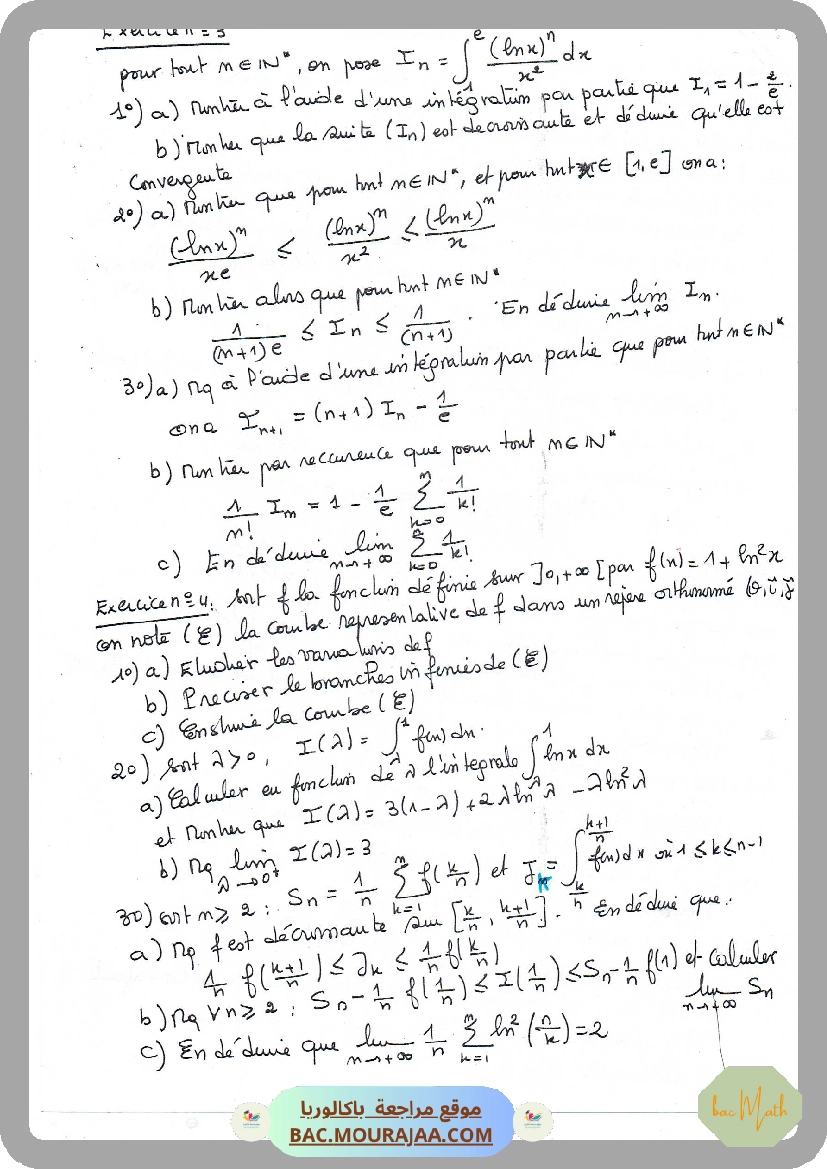 Exercice n=3
pour tout n ∈ IN*, on pose I_n = ∫_1^e (lnx)^n / x² dx
1°) a) Montrer à l'aide d'une intégration par partie que I_1 = 1 - 2/e.
b) Montrer que la suite (I_n) est decroissante et déduire qu'elle est
Convergente
2°) a) Montrer que pour tout n ∈ IN*, et pour tout x ∈ [1,e] on a :
(lnx)^n / xe ≤ (lnx)^n / x² ≤ (lnx)^n / x
b) Montrer alors que pour tout n ∈ IN*
1/((n+1)e) ≤ I_n ≤ 1/(n+1) . En déduire lim_{n→+∞} I_n.
3°) a) Mq à l'aide d'une intégration par partie que pour tout n ∈ IN*
on a I_{n+1} = (n+1) I_n - 1/e
b) Montrer par reccurence que pour tout n ∈ IN*
1/n! I_n = 1 - 1/e ∑_{k=0}^n 1/k!
c) En déduire lim_{n→+∞} ∑_{k=0}^n 1/k!
Exercice n=4. soit f la fonction définie sur ]0,+∞[ par f(x) = 1 + ln²x
on note (ξ) la courbe representative de f dans un repère orthonormé (o, i, j
1°) a) Etudier les variations de f
b) Preciser le branches infinies de (ξ)
c) Construire la courbe (ξ)
2°) soit λ>0, I(λ) = ∫_λ^1 f(x) dx.
a) Calculer en fonction de λ l'integrale ∫_λ^1 lnx dx
et Montrer que I(λ) = 3(1-λ) + 2λlnλ - λln²λ
b) Mq lim_{λ→0+} I(λ) = 3
3°) soit n ≥ 2 : S_n = 1/n ∑_{k=1}^n f(k/n) et J_k = ∫_{k/n}^{(k+1)/n} f(x) dx où 1 ≤ k ≤ n-1
a) Mq f est décroissante sur [k/n, (k+1)/n]. En déduire que :
1/n f((k+1)/n) ≤ J_k ≤ 1/n f(k/n)
b) Mq ∀ n ≥ 2 : S_n - 1/n f(1/n) ≤ I(1/n) ≤ S_n - 1/n f(1) et Calculer
lim_{n→+∞} S_n
c) En déduire que lim_{n→+∞} 1/n ∑_{k=1}^n ln²(n/k) = 2
موقع مراجعة باكالوريا
BAC.MOURAJAA.COM
bac Math